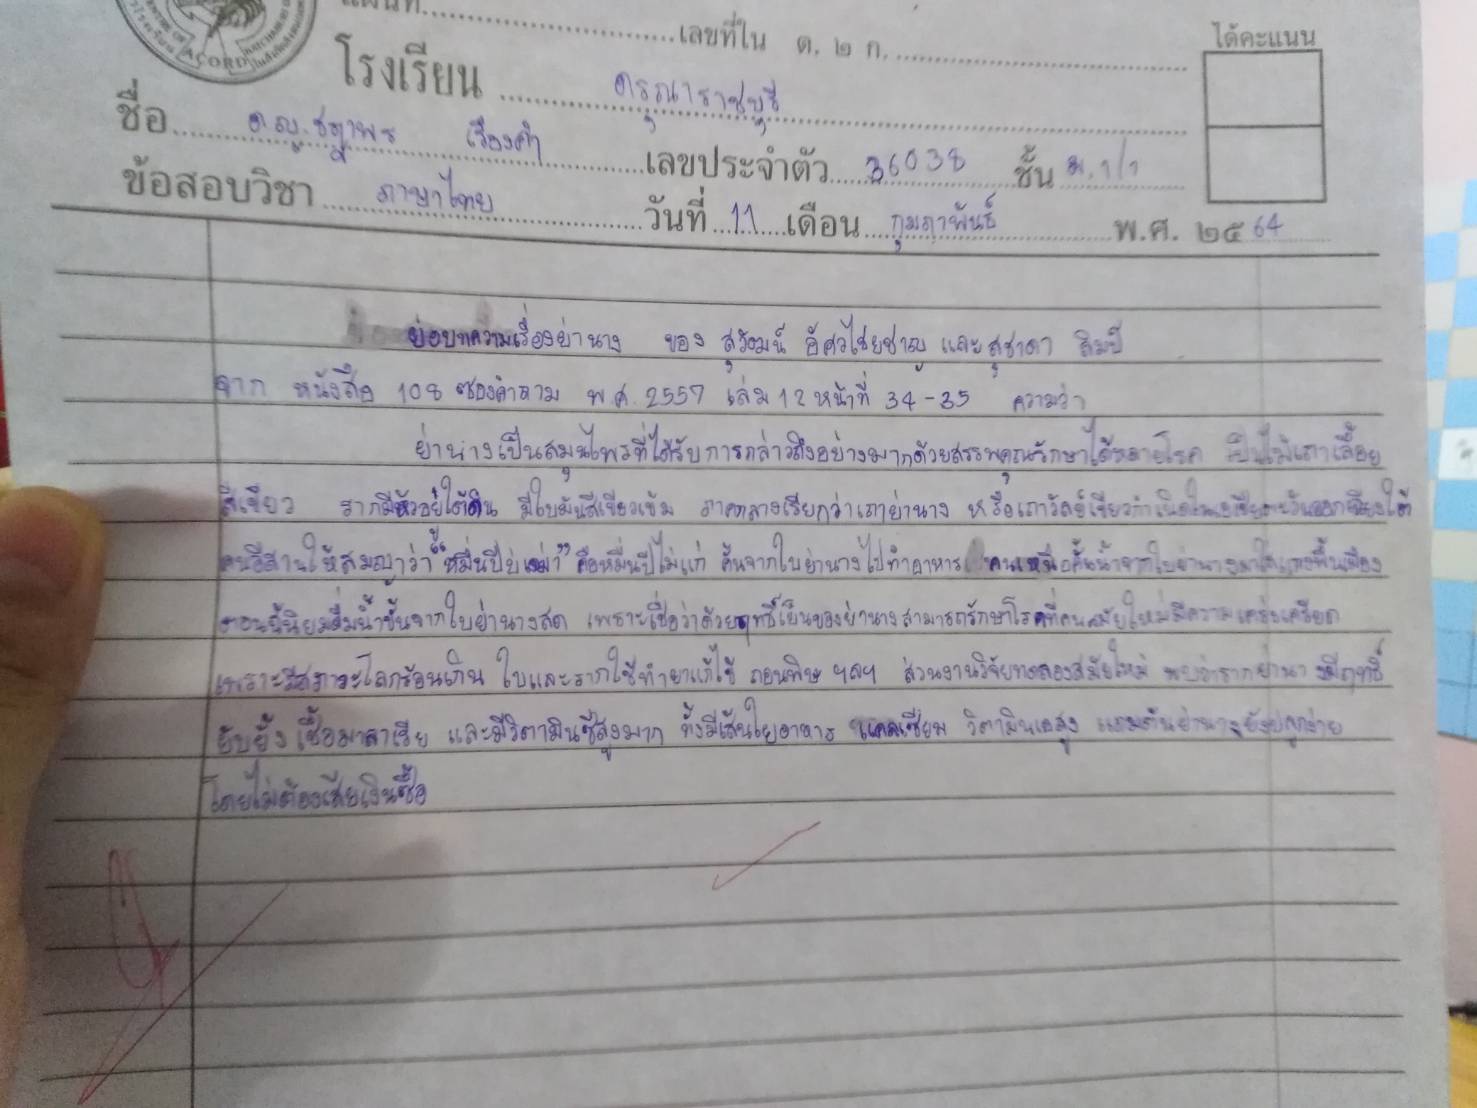 แผ่นที่
เลขที่ใน ต. ๒ ก.
ได้คะแนน
ACORD
โรงเรียน ดรุณาราชบุรี
ชื่อ ด.ญ. ชฎาพร เรืองคำ เลขประจำตัว 36038 ชั้น ม.1/1
ข้อสอบวิชา ภาษาไทย วันที่ 11 เดือน กุมภาพันธ์ พ.ศ. ๒๕ 64
ย่อบทความเรื่องย่านาง ของ สุวัฒน์ อัศวไชยชาญ และ สุชาดา ลิมป์
จาก หนังสือ 108 ซองคำถาม พ.ศ. 2557 เล่ม 12 หน้าที่ 34-35 ความว่า
ย่านางเป็นสมุนไพรที่ได้รับการกล่าวถึงอย่างมากด้วยสรรพคุณรักษาได้หลายโรค เป็นไม้เถาเลื้อย
สีเขียว รากมีหัวอยู่ใต้ดิน มีใบมันสีเขียวเข้ม ภาคกลางเรียกว่าเถาย่านาง หรือเถาวัลย์เขียวกำเนิดในเอเชียตะวันออกเฉียงใต้
คนอีสานให้สมญาว่า "หมื่นปีบ่เฒ่า" คือหมื่นปีไม่แก่ คั้นจากใบย่านางไปทำอาหาร คนเหนือคั้นน้ำจากใบย่านางมาใส่แกงพื้นเมือง
ตอนนี้นิยมดื่มน้ำคั้นจากใบย่านางสด เพราะเชื่อว่าด้วยฤทธิ์เย็นของย่านางสามารถรักษาโรคที่คนสมัยใหม่มีความเคร่งเครียด
เพราะมีสภาวะโลกร้อนเกิน ใบและรากใช้ทำยาแก้ไข้ ถอนพิษ ฯลฯ ส่วนงานวิจัยทดลองสมัยใหม่ พบว่ารากย่านางมีฤทธิ์
ยับยั้งเชื้อมาลาเรีย และมีวิตามินซีสูงมาก ทั้งมีเส้นใยอาหาร แคลเซียม วิตามินเอสูง แถมต้นย่านางยังปลูกง่าย
โดยไม่ต้องเสียเงินซื้อ